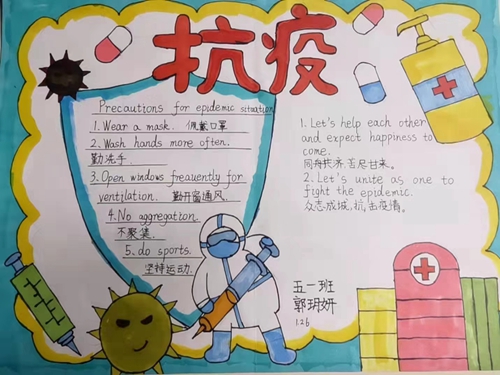 抗疫
Precautions for epidemic situation
1. Wear a mask. 佩戴口罩
2. Wash hands more often.
勤洗手.
3. Open windows frequently for
ventilation. 勤开窗通风.
4. No aggregation.
不聚集.
5. do sports.
坚持运动.
1. Let's help each other
and expect happiness to
come.
同舟共济.苦尽甘来.
2. Let's unite as one to
fight the epidemic.
众志成城,抗击疫情.
五一班
郭玥妍
1.26